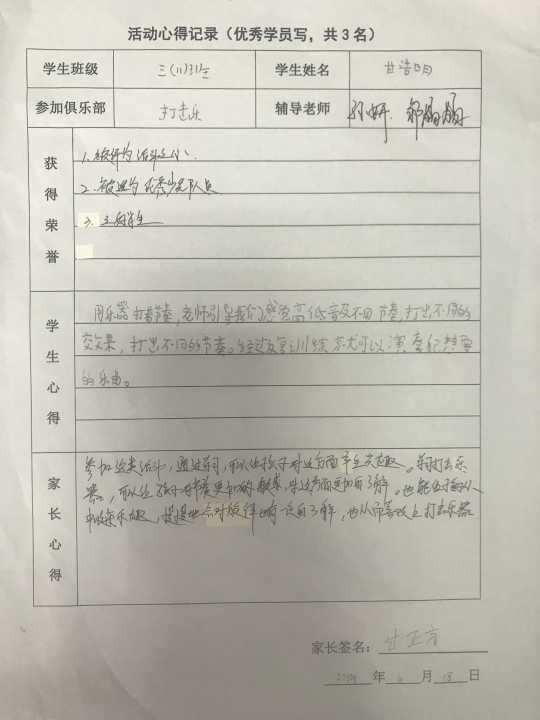 活动心得记录（优秀学员写，共3名）
学生班级 三（11）班 学生姓名 甘浩明
参加俱乐部 打击乐 辅导老师
获得荣誉
1. 被评为活动之心、
2. 被选为优秀少先队员
3. 三好学生
学生心得
用乐器打节奏，老师引导我们感觉高低音及不同节奏，打出不同的
效果，打出不同的节奏。经过反复训练就可以演奏很想要
的乐曲。
家长心得
参加这类活动，通过学习，可以让孩子对这方面产生兴趣。学打击乐
器，可以让孩子对节奏更加的敏感，对这方面更加有了解。也能让孩子从
中收获乐趣，慢慢地会对旋律的有一定的了解，也从而喜欢上打击乐器
家长签名：
年 月 日